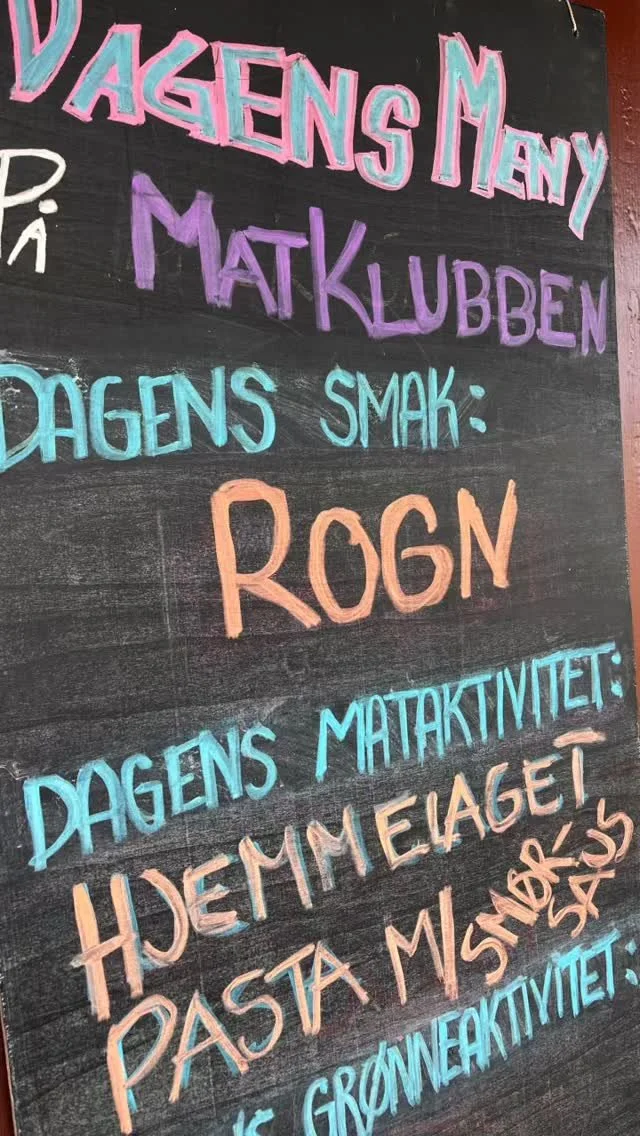 DAGENS MENY
PÅ MATKLUBBEN
DAGENS SMAK:
ROGN
DAGENS MATAKTIVITET:
HJEMMELAGET
PASTA M/SMØR-
SAUS
GRØNNEAKTIVITET: